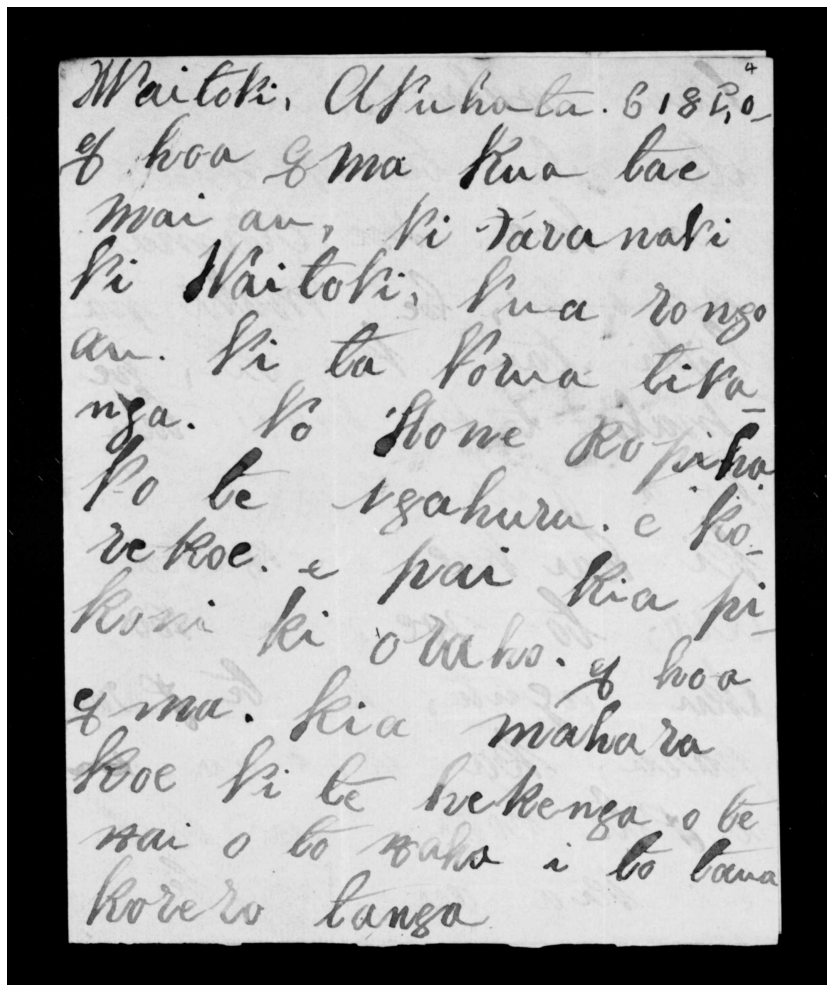 4
Waitoki, Akuhata. 6 1850
E hoa E ma Kua tae
mai au, ki Taranaki
ki Waitoki, kua rongo
au. ki ta korua tika_
nga. ko Hone Kopiha
ko te ngahuru. e ko_
re koe. e pai kia pi_
koni ki oraho. E hoa
E ma. kia mahara
koe ki te hekenga o te
wai o to waha i to taua
korero tanga